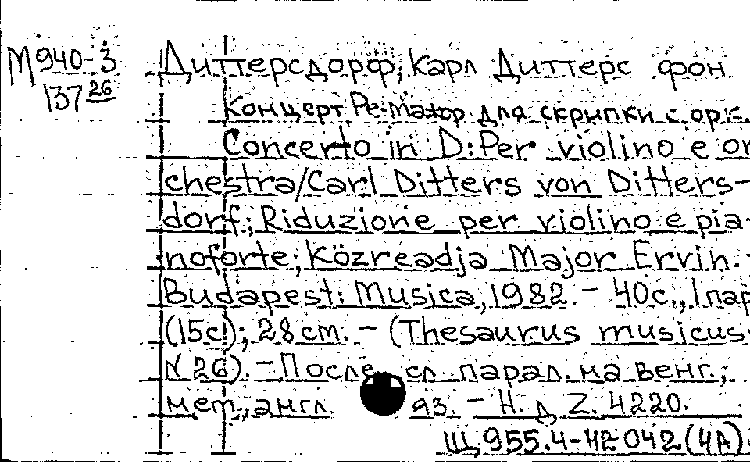 М940-3
137 26
Диттерсдорф, Карл Диттерс фон
Концерт Ре-мажор для скрипки с орк.
Concerto in D: Per violino e or
chestra/Carl Ditters von Ditters-
dorf; Riduzione per violino e pia-
noforte; Közreadja Major Ervin.-
Budapest: Musica, 1982. - 40с., 1 пар
(15с.); 28cm. - (Thesaurus musicus
N 26). - После сл. парал. на венг.,
нем., англ. яз. - Н. д. Z. 4220.
Щ 955.4-42 042 (4А)